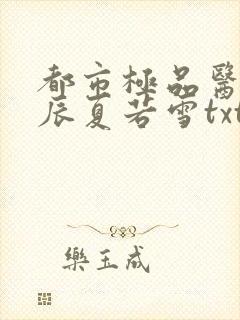 都市極品醫
辰夏若雪txt
樂王成